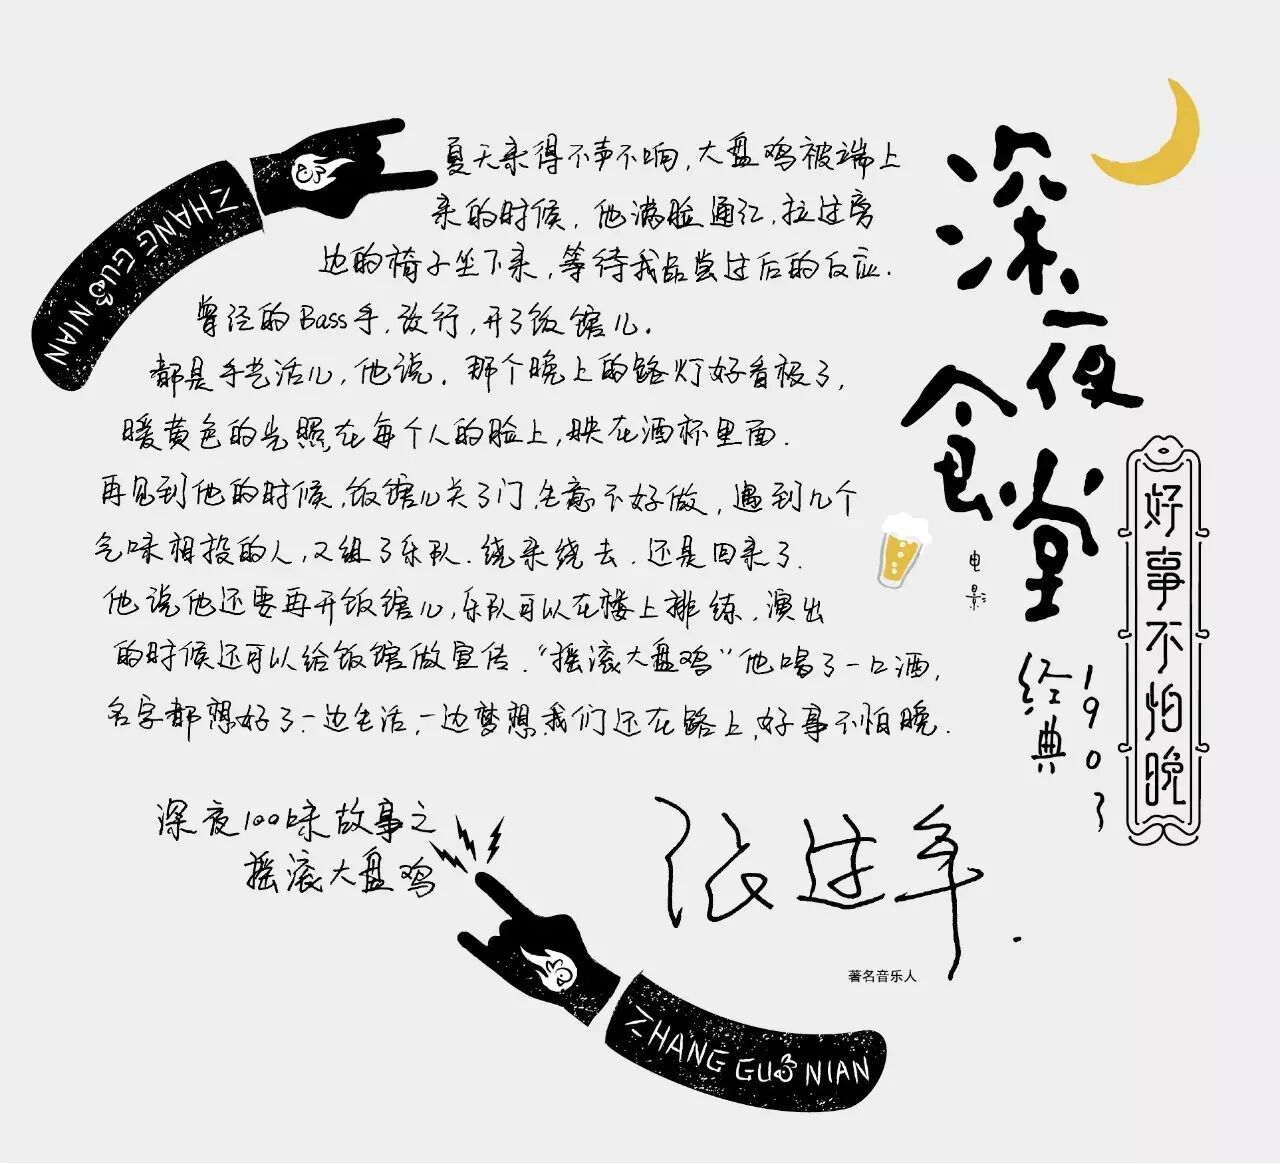 深夜食堂
电影
经典1903
好事不怕晚
ZHANG GUO NIAN
夏天来得不声不响,大盘鸡被端上
来的时候,他满脸通红,拉过旁
边的椅子坐下来,等待我品尝过后的反应.
曾经的Bass手,改行,开了饭馆儿.
都是手艺活儿,他说.那个晚上的路灯好看极了,
暖黄色的光照在每个人的脸上,映在酒杯里面.
再见到他的时候,饭馆儿关了门,生意不好做,遇到几个
气味相投的人,又组了乐队.绕来绕去.还是回来了.
他说他还要再开饭馆儿,乐队可以在楼上排练,演出
的时候还可以给饭馆做宣传."摇滚大盘鸡"他喝了一口酒,
名字都想好了.一边生活,一边梦想,我们还在路上,好事不怕晚.
深夜100味故事之
摇滚大盘鸡
张过年.
著名音乐人
ZHANG GUO NIAN